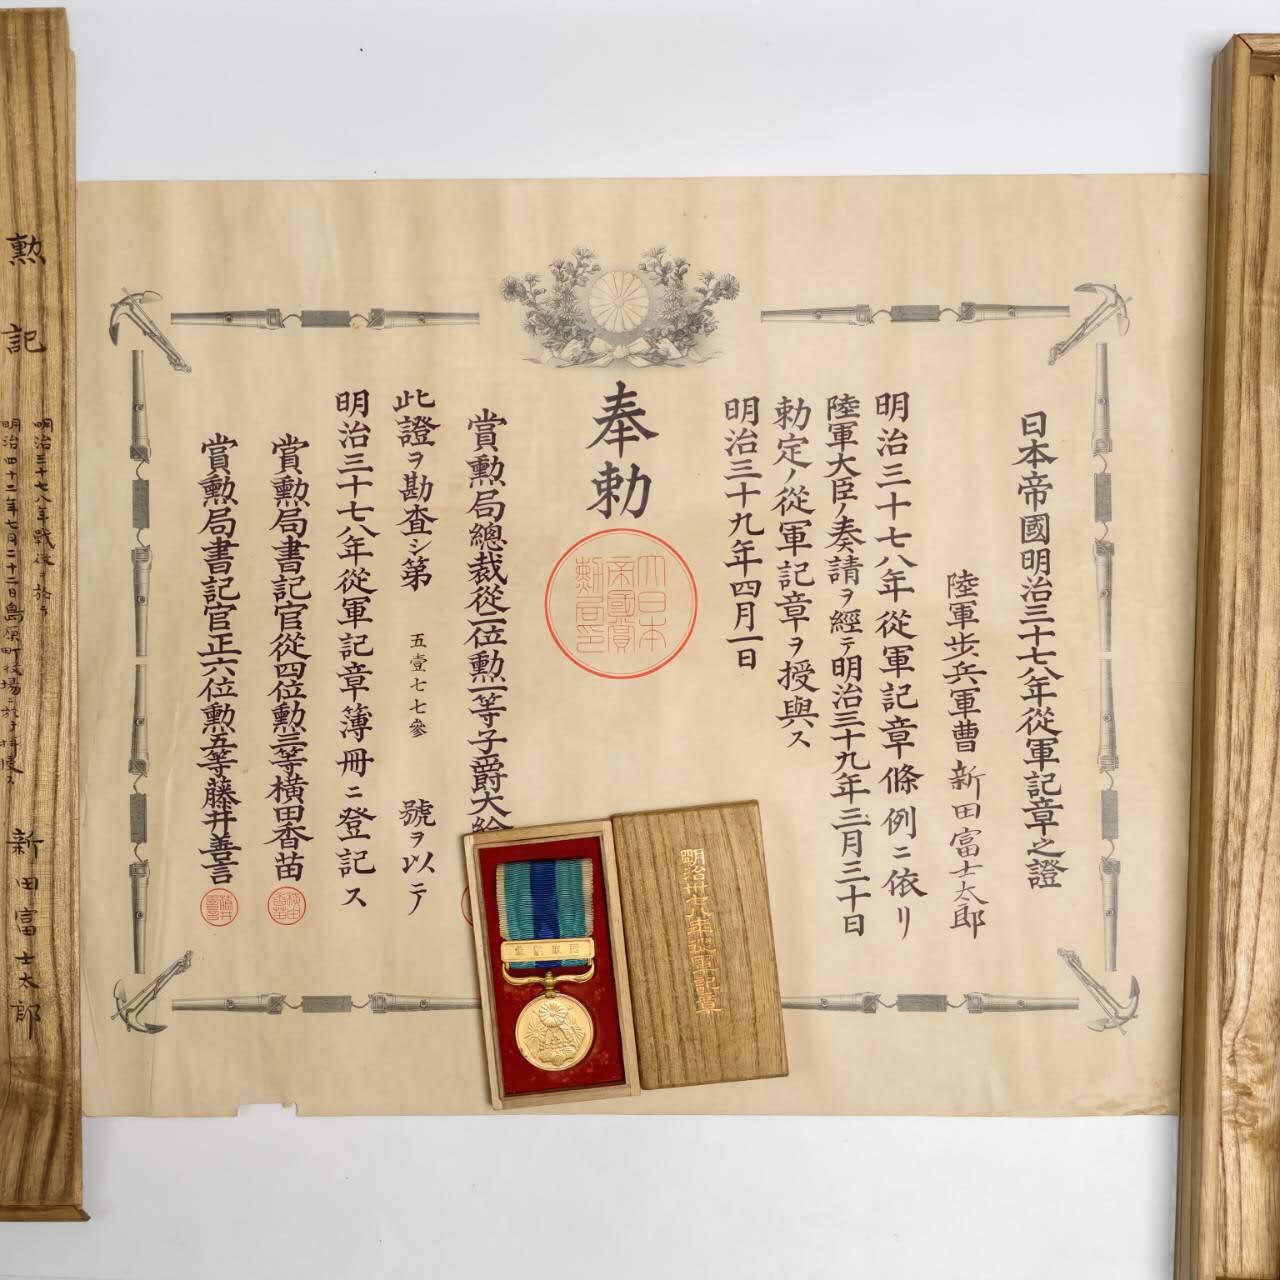 日本帝國明治三十七八年從軍記章之證
陸軍歩兵軍曹 新田富士太郎
明治三十七八年從軍記章條例ニ依リ
陸軍大臣ノ奏請ヲ經テ明治三十九年三月三十日
勅定ノ從軍記章ヲ授與ス
明治三十九年四月一日
奉勅
大日本
帝國賞
勲局印
賞勲局總裁從二位勲一等子爵大給
此證ヲ勘査シ第 五壹七七參 號ヲ以テ
明治三十七八年從軍記章簿冊ニ登記ス
賞勲局書記官從四位勲三等横田香苗
賞勲局書記官正六位勲五等藤井善言
明治卅七八年從軍記章
勲記
明治三十七八年戰役ニ於テ
明治四十二年七月二十二日島原町役場ニ於テ拝受ス
新田富士太郎